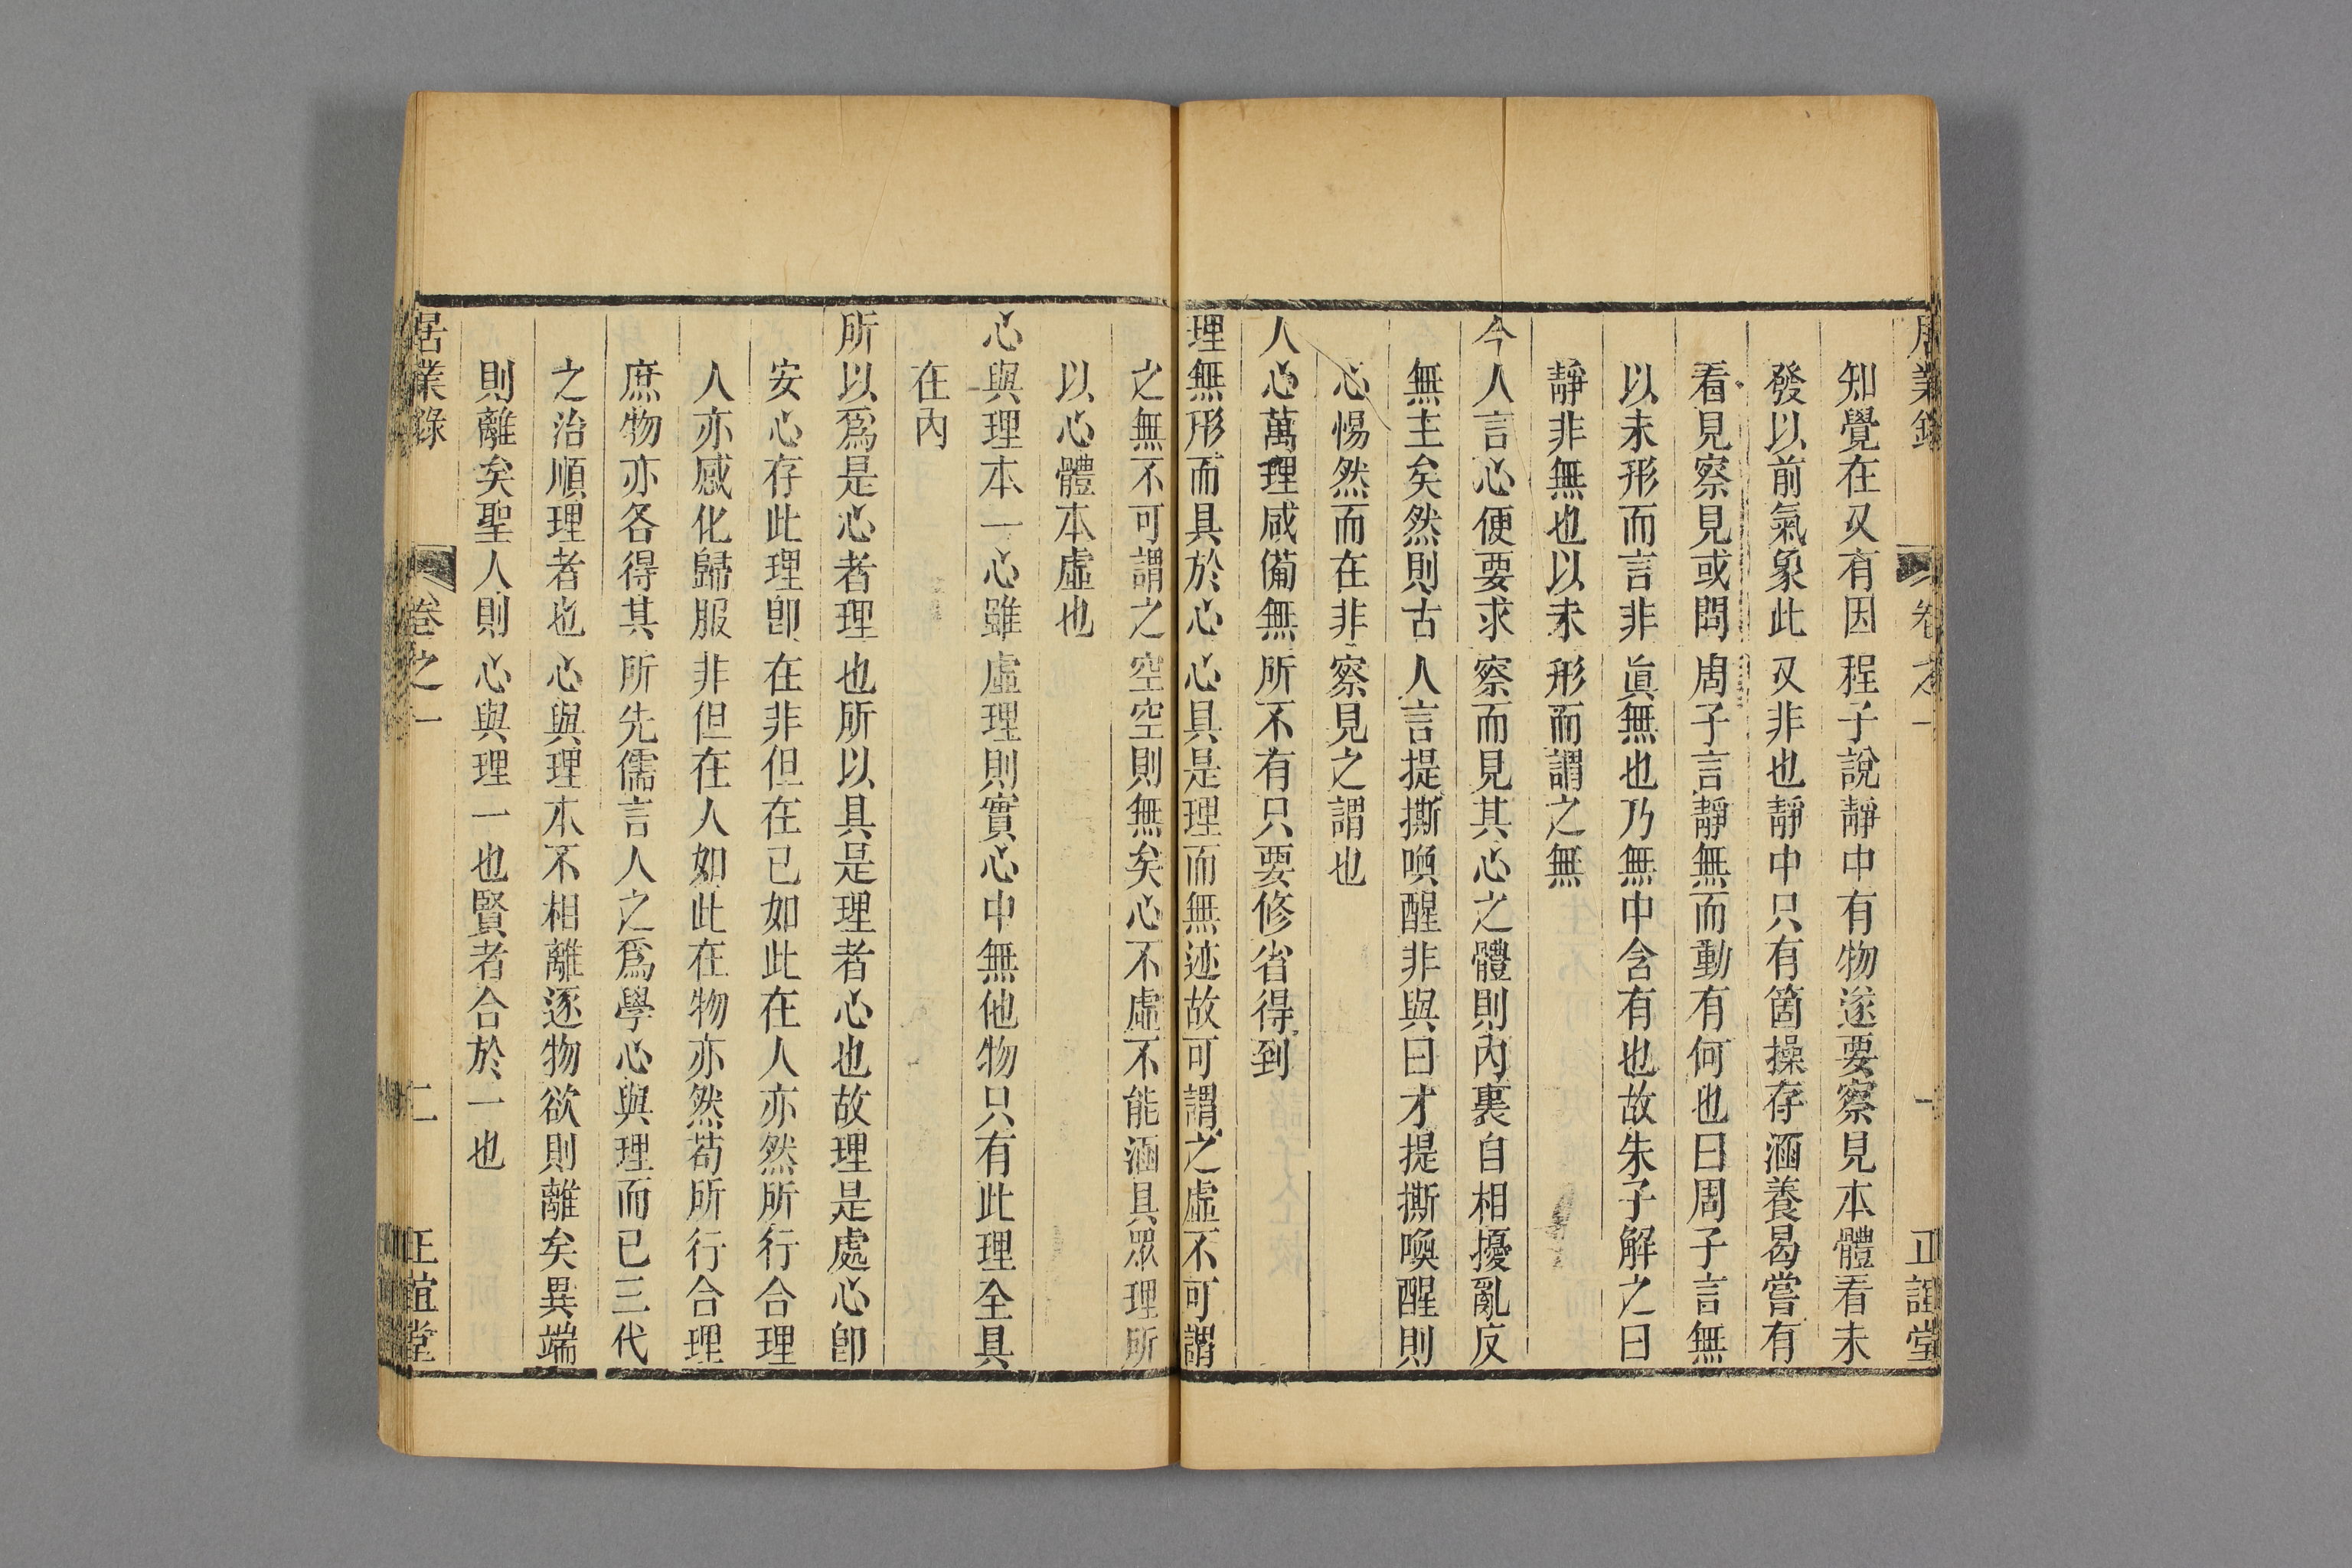 居業錄 卷之一 一 正誼堂
知覺在又有因程子說靜中有物遂要察見本體看未
發以前氣象此又非也靜中只有箇操存涵養曷嘗有
看見察見或問周子言靜無而動有何也曰周子言無
以未形而言非眞無也乃無中含有也故朱子解之曰
靜非無也以未形而謂之無
今人言心便要求察而見其心之體則內裏自相擾亂反
無主矣然則古人言提撕喚醒非與曰才提撕喚醒則
心惕然而在非察見之謂也
人心萬理咸備無所不有只要修省得到
理無形而具於心心具是理而無迹故可謂之虛不可謂
之無不可謂之空空則無矣心不虛不能涵具眾理所
以心體本虛也
心與理本一心雖虛理則實心中無他物只有此理全具
在內
所以爲是心者理也所以具是理者心也故理是處心卽
安心存此理卽在非但在已如此在人亦然所行合理
人亦感化歸服非但在人如此在物亦然苟所行合理
庶物亦各得其所先儒言人之爲學心與理而已三代
之治順理者也心與理本不相離逐物欲則離矣異端
則離矣聖人則心與理一也賢者合於一也
居業錄 卷之一 二 正誼堂